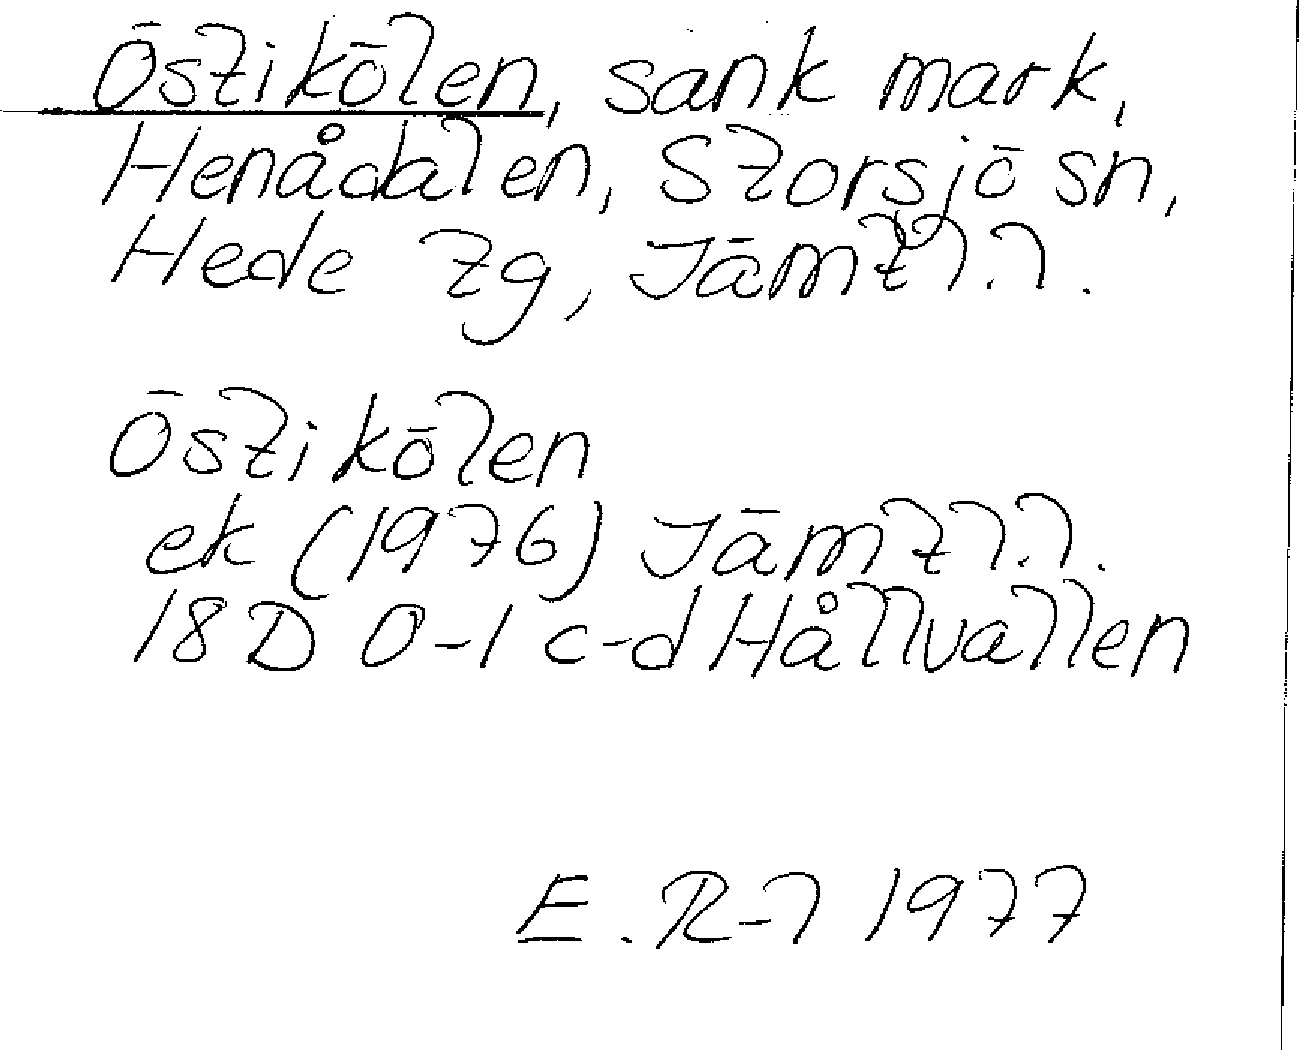 Östikölen, sank mark,
Henådalen, Storsjö sn,
Hede tg, Jämtl.l.
Östikölen
ek (1976) Jämtl.l.
18D 0-1 c-d Hållvallen
E. R-l 1977